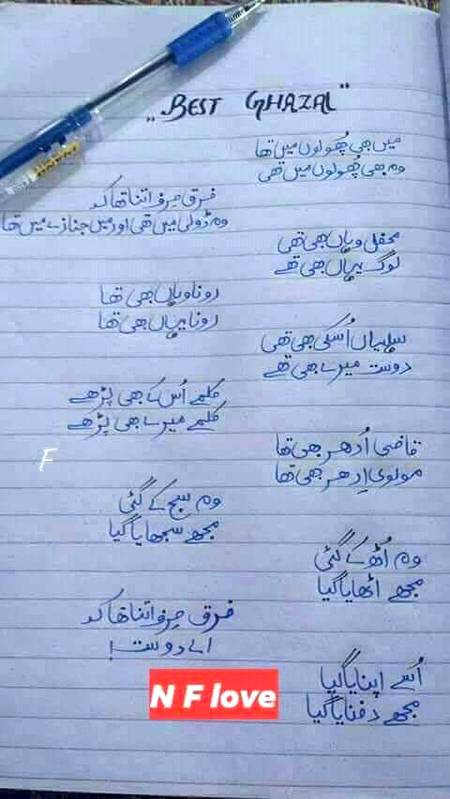 "BEST GHAZAL"
میں بھی پھولوں میں تھا
وہ بھی پھولوں میں تھی
فرق صرف اتنا تھا کہ
وہ ڈولی میں تھی اور میں جنازے میں تھا
محفل وہاں بھی تھی
لوگ یہاں بھی تھے
رونا وہاں بھی تھا
رونا یہاں بھی تھا
سہلیاں اُسکی بھی تھی
دوست میرے بھی تھے
کلمے اُس کے بھی پڑھے
کلمے میرے بھی پڑھے
قاضی اُدھر بھی تھا
مولوی اِدھر بھی تھا
وہ سج کے گئی
مجھے سجھایا گیا
F
وہ اُٹھ کے گئی
مجھے اٹھایا گیا
فرق صرف اتنا تھا کہ
اے دوست!
اُسے اپنایا گیا
مجھے دفنایا گیا
N F love